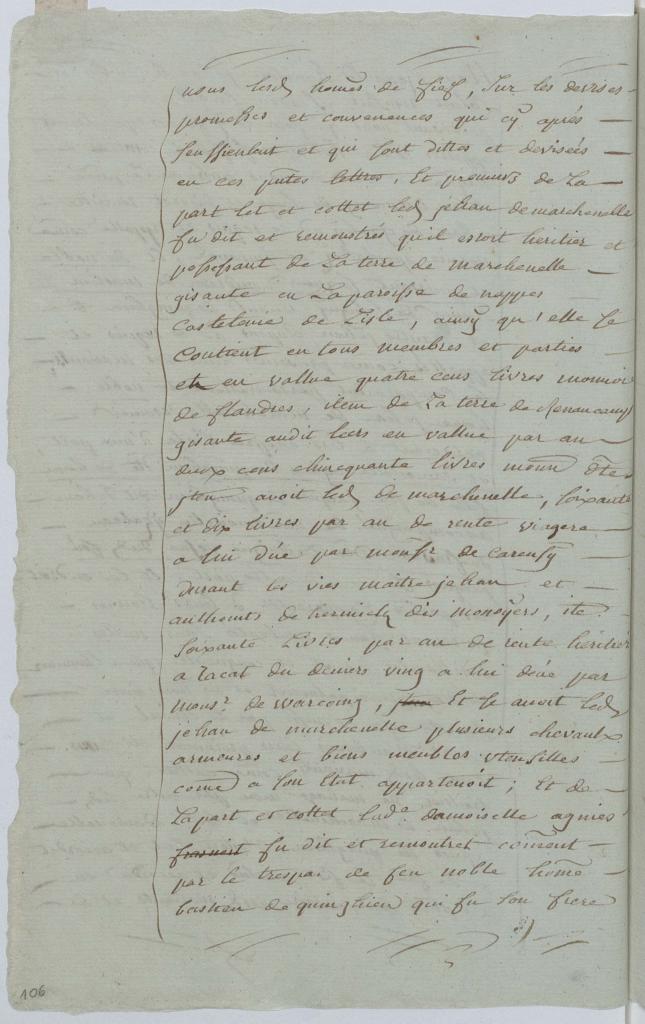 nous lesd homes de fief, Sur les devises
promesses et convenences qui cy après
senssieulvit et qui sont dittes et devisées
en ces pntes lettres. Et premiers de La
part let et costet led jehan demarchenelle
fu dit et remonstrés qu'il estoit heritier et
possessant de La terre de marchenelle
gisante en La paroisse de nappes
castelenie de Lisle, ainsy qu'elle se
Contient en tous membres et parties
et en vallue quatre cens livres monnoie
de flandres, item de La terre de
gisante audit lieu en vallue par an
deux cens chincquante livres monn dte
jtem avoit led de marchenelle, soixante
et dix livres par an de rente viagere
a lui düe par monsr de carensy
durant les vies maitre jehan et
anthoints de hernich dis monoÿers, ite
soixante Livres par an de rente héritier
a racat du deniers ving a lui deüe par
monsr de warcoing, Et se avoit led
jehan de marchenelle plusieurs chevaulx
armeures et biens meubles vtensilles
come a son Etat appartenoit ; Et de
La part et costet lade damoiselle agnies
fu dit et remontret coment
par le trespas de feu noble home
bastien de quinghien qui fu son frere
106